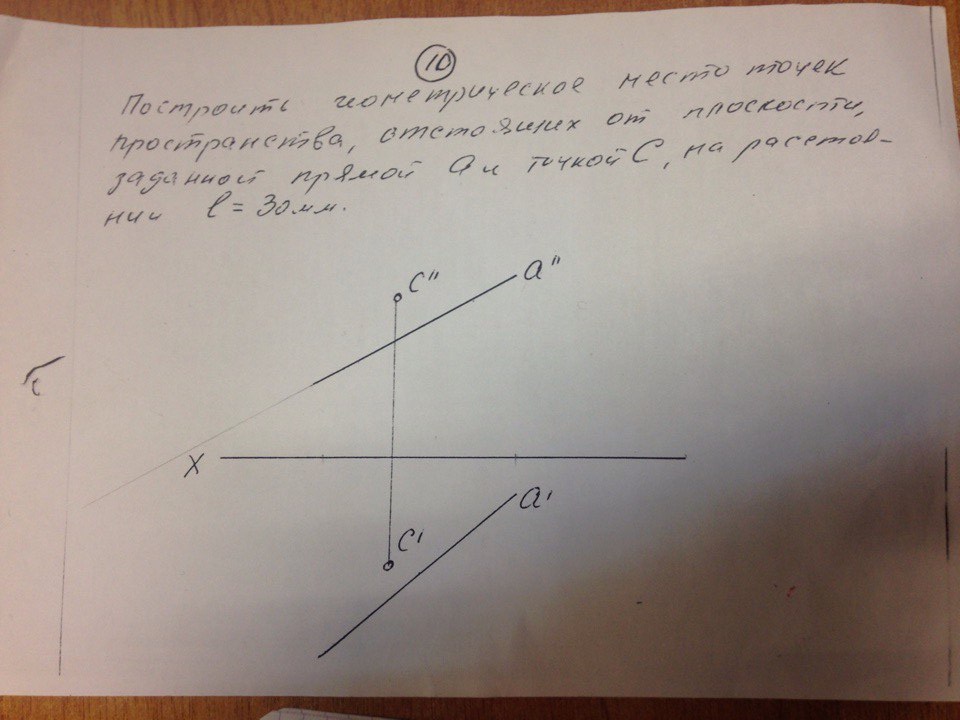 10
Построить геометрическое место точек
пространства, отстоящих от плоскости,
заданной прямой a и точкой C, на расстоя-
нии l = 30мм.
C"
a"
X
a'
C'